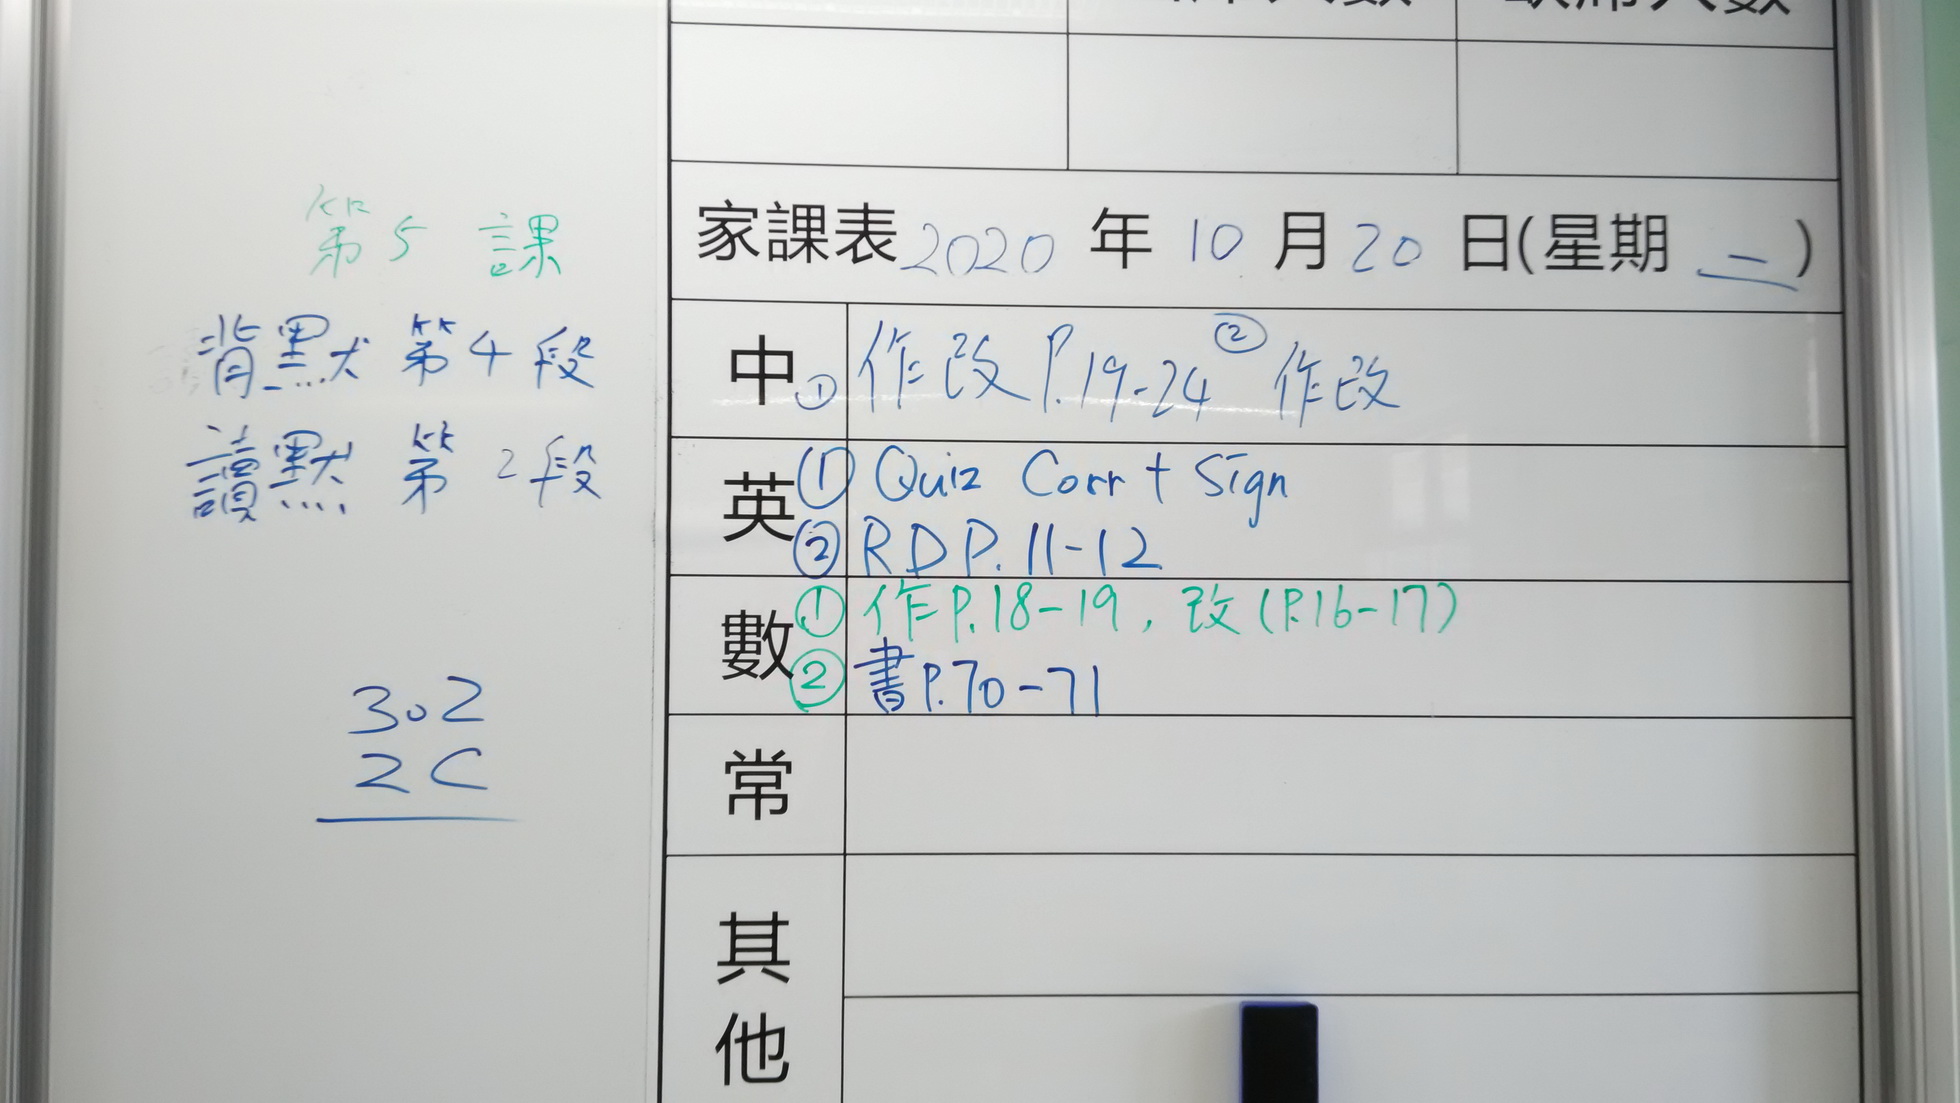 第5課
背默 第4段
讀默 第2段
302
2C
人數
人數
家課表 2020 年 10 月 20 日(星期 二)
中 ① 作改 P.19-24 ② 作改
英 ① Quiz Corr + Sign
② RD P.11-12
數 ① 作P.18-19, 改(P.16-17)
② 書P.70-71
常
其
他